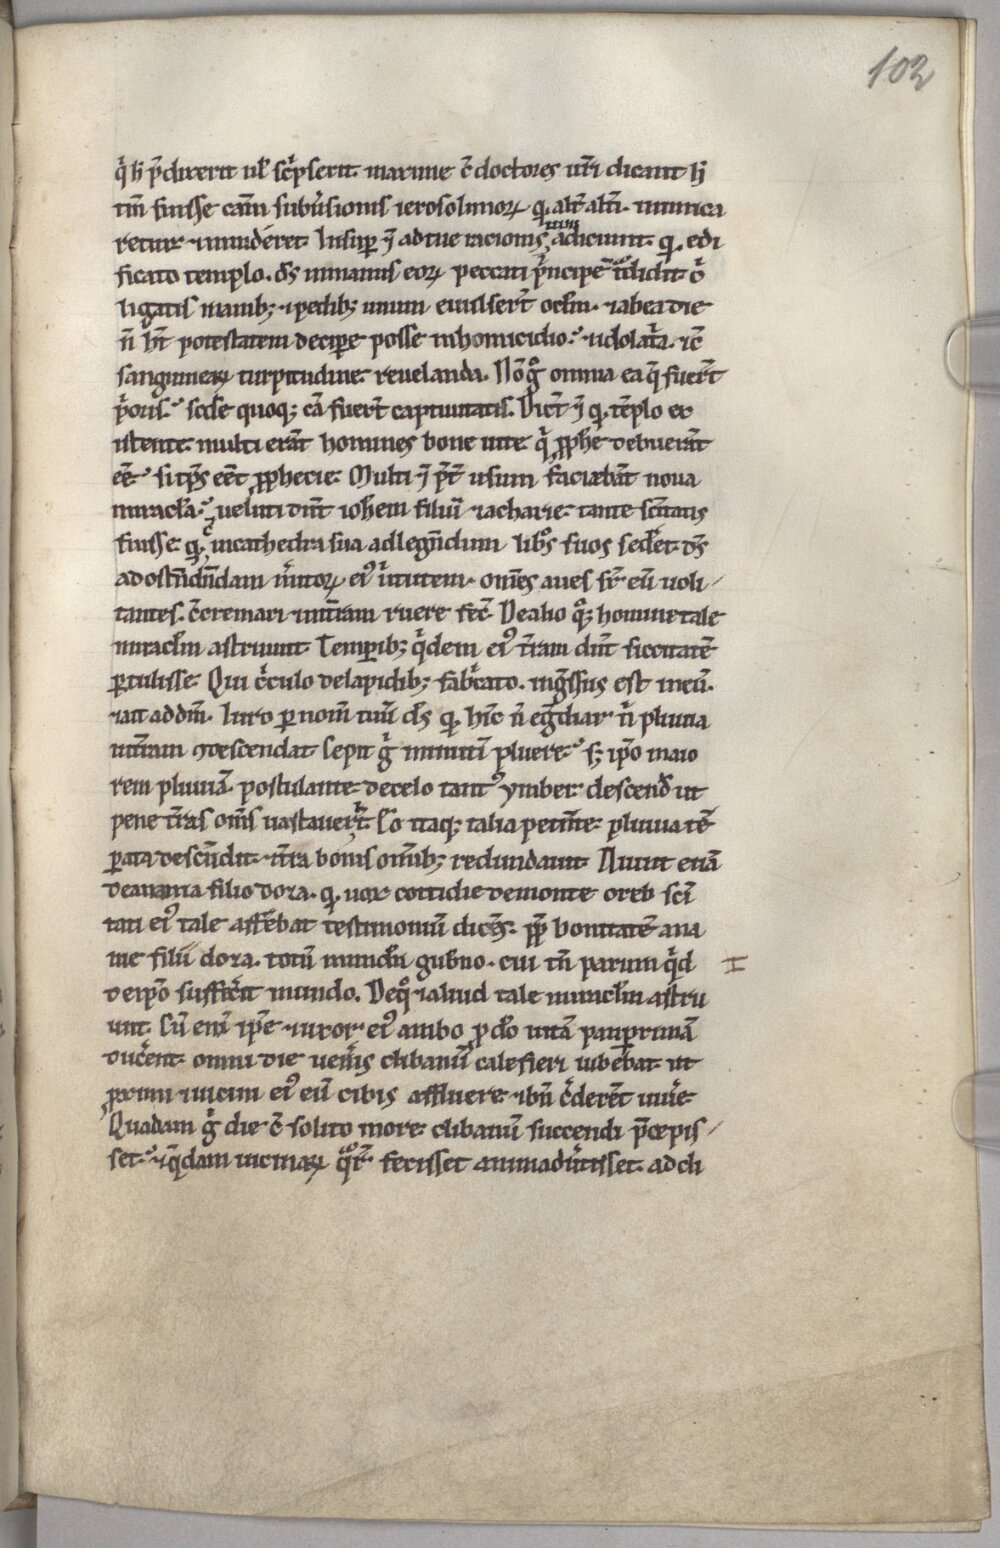 102
q̓ h̓ p̄dixerit ul̓ sc̓pserit. maxime c̄ doctores ur̄i dicant h̓
tm̄ fuisse cām subu̓sionis ierosolimoꝝ q. alt̓ alt̓i. inimica
retur ⁊ inuideret. Insup̱ ⁊ ad tue racionis adiciunt. q. edi
ficato templo. ds̄ in manus eoꝝ peccati p̓ncipē t̓didit c̓
ligatis manib; ⁊ pedib; unum eius ser̄t oclm̄. ⁊ ab ea die
n̄ ht̄ potestatem decipe posse in homicidio. ⁊ idolat̓a. ⁊ c̄
sanguineaꝝ turpitudine reuelanda. Nō g̊ omnia ea q̄ fuer̄t
p̓oris. sc̄de quoq; cā fuer̄t captiuitatis. Dic̄t ⁊ q. tēplo ex
istente multi erāt homines bone uite q̓ ꝓphē debuerāt
eē. si tp̄s eēt ꝓphecie. Multi ⁊ p̄t̄ usum faciebāt noua
miracl̓a. ueluti dn̄t ioh̄em filiū zacharie tante sc̄itatis
fuisse q. in cathedra sua ad legēdum lib̓os suos sedet̓. ds̄
ad ostēdēdam m̓itoꝝ eiꝰ u̓tutem. omēs aues sr̄ eū uoli
tantes. c̄cremari ⁊ in t̄ram ruere fec̄. De alio q̊q; homine tale
miracl̓m astruunt. Temporib; q̓dem eiꝰ t̄ram dn̄t siccitatē
ꝑtulisse. Qui c̓culo de lapidib; fab̓cato. ing̓ssus est in eū.
⁊ ait ad dm̄. Iuro ꝑ nom̄ tuū ds̄ q. hīc n̄ eg̓diar n̓ pluuia
in t̄ram descendat. Cepit g̊ minutī pluere. s; ip̄o maio
rem pluuiā postulante de celo tantꝰ ymber descend̓ ut
pene t̄ras om̄s uastauer̄t. Eo itaq; talia petente. pluuia tē
ꝑata descēdit. ⁊ t̄ra bonis om̄ib; redundauit. Aiunt etiā
de anania filio dora. q. uox cottidie de monte oreb sc̄i
tati eiꝰ tale affebat testimoniū dices. ꝓp̄ bonitatē ana
nie filii dora. totū mundū gub̄no. cui tn̄ parum q̓d
de ip̄o suffic̓it mundo. De q̊ ⁊ aliud tale miracl̓m astru
unt. Cū eni ip̄e ⁊ uxor eiꝰ ambo ꝓ do uitā pauꝑrimā
duc̓ent. omni die uen̓is clibanū calefieri iubebat. ut
ꝓximi ⁊ uicini eiꝰ eū cibis affluere ⁊ bn̄ c̓derēt uiu̓e
Quadam g̊ die c̄ solito more clibanū succendi p̄cepis
set. ⁊ q̄dam uicinaꝝ q̊ r̄ fecisset animadu̓tisset. ad cli